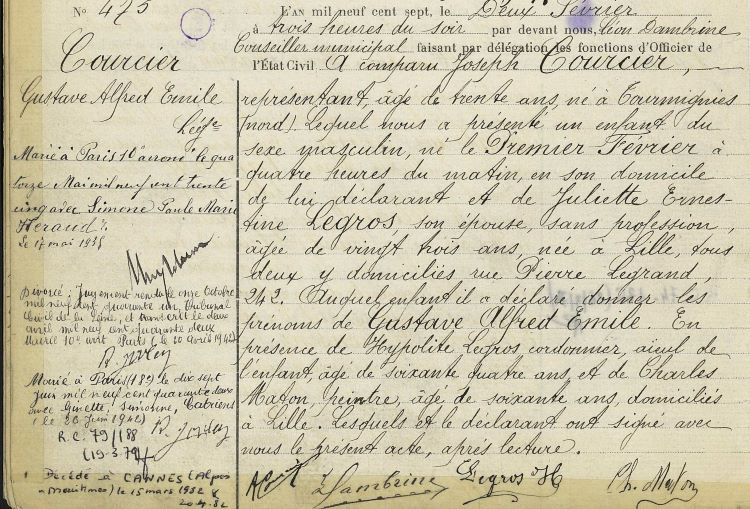 No. 475
L'AN mil neuf cent sept, le Deux Février
à trois heures du soir par devant nous, Léon Dambrine
Conseiller municipal faisant par délégation les fonctions d'Officier de
l'État Civil A comparu Joseph Courcier,
représentant, âgé de trente ans, né à Tourmignies
(nord). Lequel nous a présenté un enfant du
sexe masculin, né le Premier Février à
quatre heures du matin, en son domicile
de lui déclarant et de Juliette Ernes-
tine Legros, son épouse, sans profession,
âgée de vingt trois ans, née à Lille, tous
deux y domiciliés rue Pierre Legrand
242. Auquel enfant il a déclaré donner les
prénoms de Gustave Alfred Emile. En
présence de Hypolite Legros cordonnier, aieul de
l'enfant, âgé de soixante quatre ans, et de Charles
Maton, peintre, âgé de soixante ans, domiciliés
à Lille. Lesquels et le déclarant ont signé avec
nous le présent acte, après lecture.
L Dambrine Legros H Ch. Maton
Courcier
Gustave Alfred Emile
Lég.
Marié à Paris 10e arrond. le qua
torze Mai mil neuf cent trente
cinq avec Simone Paule Marie
Heraud
Le 17 mai 1935
Divorcé : Jugement rendu le onze Octobre
mil neuf cent quarante un, Tribunal
Civil de la Seine, et transcrit le deux
avril mil neuf cent quarante deux
Mairie 10e arrt Paris (le 10 Avril 1942)
Marié à Paris (18e) le dix sept
Juin mil neuf cent quarante deux
avec Ginette, Simonne,
(le 26 Juin 1942)
R.C. 79/188
(19-3-79)
Décédé à CANNES (Alpes
Maritimes) le 15 mars 1982
20.4.82